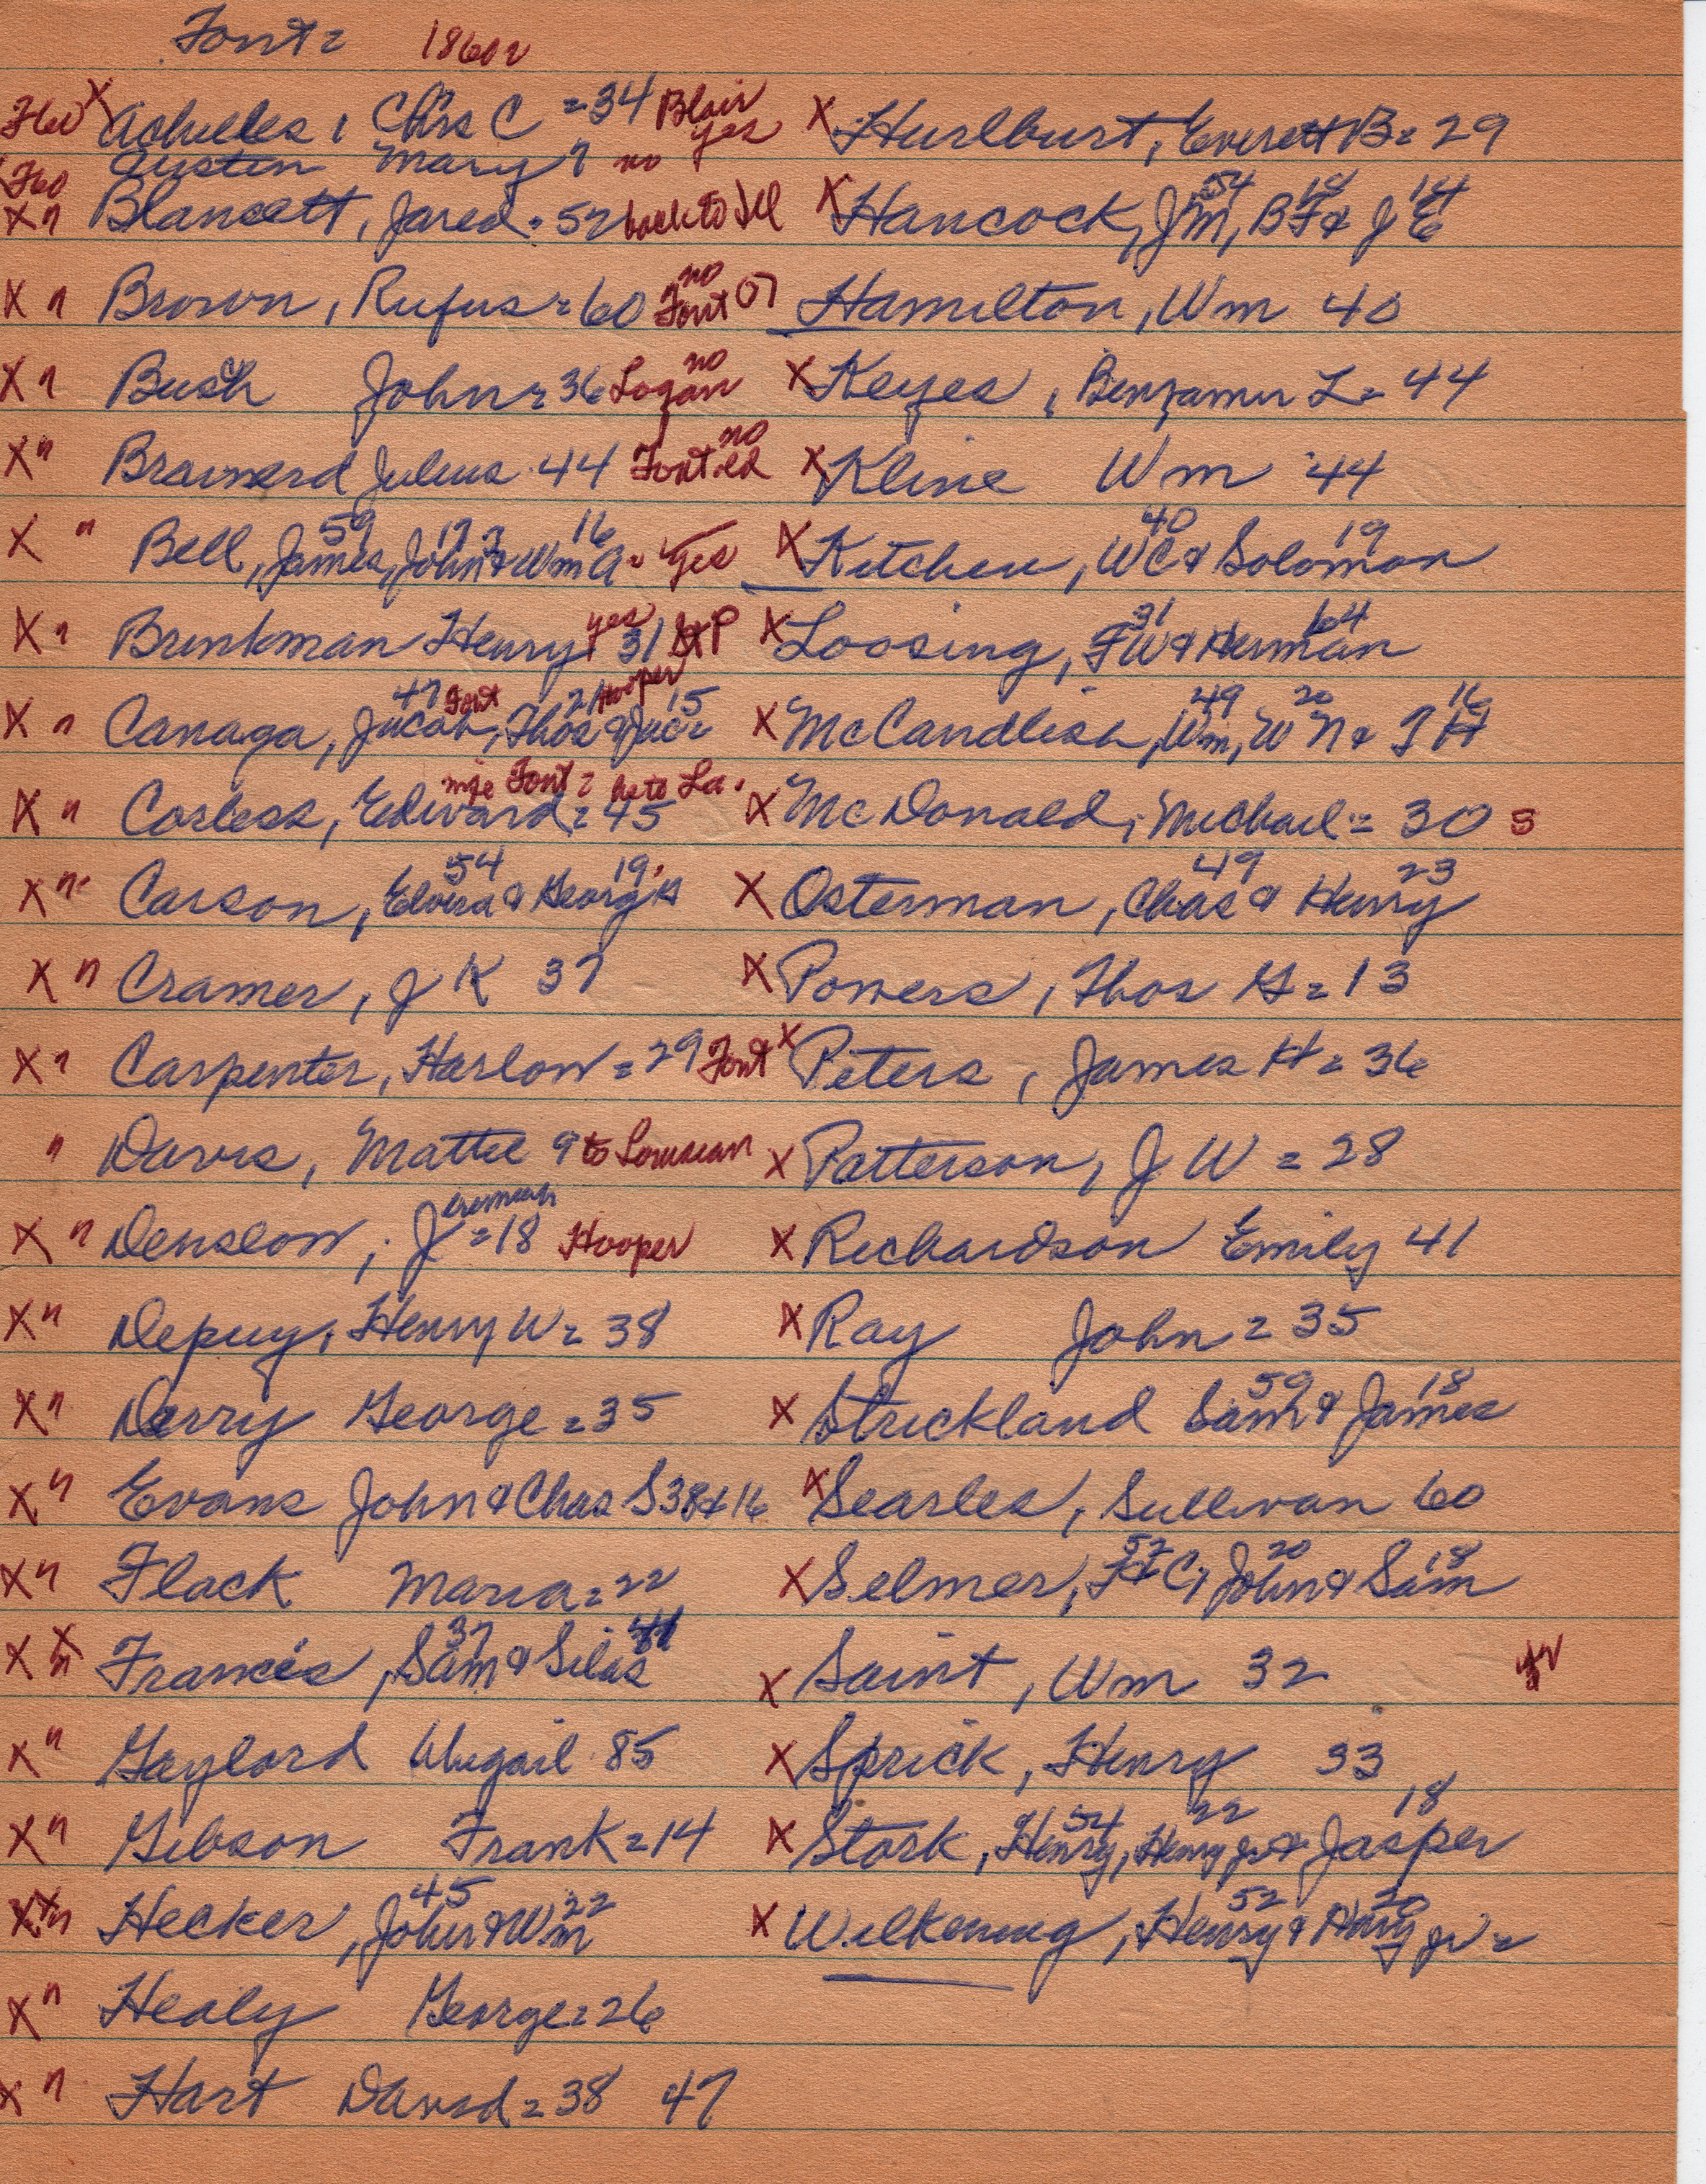 Font = 1860
F60 X Achilles, Chrs C = 34 Blair yes
Austin Mary 7 no
F60 X " Blansett, Jared = 52 back to Ill
X " Brown, Rufus = 60 no Font 07
X " Bush John = 36 no Logan
X " Brainerd Julius 44 no Font
X " Bell, James, 59 John & 17 Wm A = 16 Yes
X " Brinkman Henry 31 yes
X " Canaga, Jacob, 47 Font Thos & 21 Hooper Jac = 15
X " Corless, Edward = 45 Font = to La.
X " Carson, Elvira & 54 Georg 19
X " Cramer, J K 37
X " Carpenter, Harlow = 29 Font
" Davis, Mattie 9 to
X " Denslow, Jeremiah = 18 Hooper
X " Depuy, Henry W = 38
X " Derry George = 35
X " Evans John & Chas S 38 & 16
X " Flack Maria = 22
X X " Francis, Sam & 37 Silas
X " Gaylord Abigail 85
X " Gibson Frank = 14
X X " Hecker, John & 45 Wm 22
X " Healy George = 26
X " Hart David = 38 47
X Hurlburt, Everett B = 29
X Hancock, J M, 54 B F & 18 J E 14
Hamilton, Wm 40
X Keyes, Benjamin L = 44
X Kline Wm 44
X Kitchen, W C & 40 Solomon 19
X Loosing, F W & 31 Herman 64
X McCandlish, Wm, 49 W N & 20 T H 16
X McDonald, Michael = 30 s
X Osterman, Chas & 49 Henry 23
X Powers, Thos G = 13
X Peters, James H = 36
X Patterson, J W = 28
X Richardson Emily 41
X Ray John = 35
X Strickland Saml & 59 James 18
X Searles, Sullivan 60
X Selmer, F C, 52 John & 20 Sam 18
X Saint, Wm 32
X Sprick, Henry 33
X Stork, Henry, 54 Henry jr & 22 Jasper 18
X Wilkening, Henry & 52 Henry jr = 20